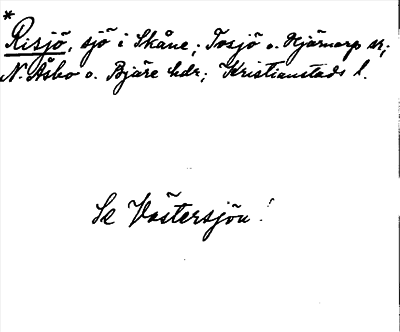 *
Risjö, sjö i Skåne; Tosjö o. Hjärnarp sr;
N. Åsbo o. Bjäre hdr; Kristianstads l.
Se Västersjön!